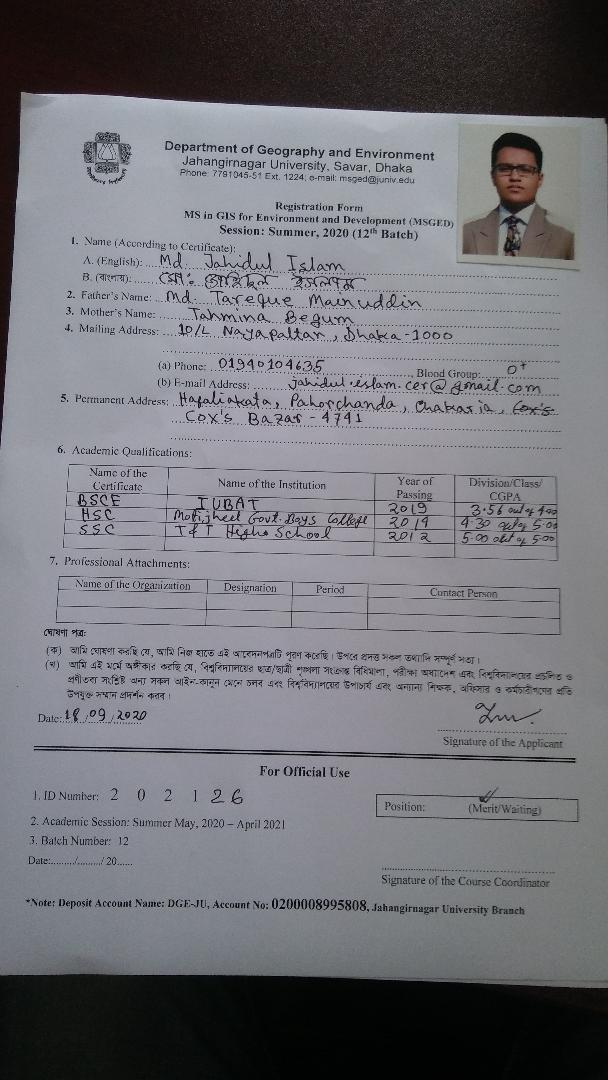 Department of Geography and Environment
Jahangirnagar University, Savar, Dhaka
Phone: 7791045-51 Ext. 1224; e-mail: msged@juniv.edu
Registration Form
MS in GIS for Environment and Development (MSGED)
Session: Summer, 2020 (12th Batch)
1. Name (According to Certificate):
A. (English): Md. Jahidul Islam
B. (বাংলায়): মোঃ জাহিদুল ইসলাম
2. Father's Name: Md. Tareque Mainuddin
3. Mother's Name: Tahmina Begum
4. Mailing Address: 10/L Nayapaltan, Dhaka-1000
(a) Phone: 01940104635, Blood Group: O+
(b) E-mail Address: jahidul.eslam.cer@gmail.com
5. Permanent Address: Hafaliakata, Paharchanda, Chakaria, Cox's
Cox's Bazar - 4741
6. Academic Qualifications:
Name of the Certificate Name of the Institution Year of Passing Division/Class/ CGPA
BSCE IUBAT 2019 3.56 out of 4.00
HSC Motijheel Govt. Boys College 2014 4.30 out of 5.00
SSC T&T Highs School 2012 5.00 out of 5.00
7. Professional Attachments:
Name of the Organization Designation Period Contact Person
ঘোষণা পত্র:
(ক) আমি ঘোষণা করছি যে, আমি নিজ হাতে এই আবেদনপত্রটি পূরণ করেছি। উপরে প্রদত্ত সকল তথ্যাদি সম্পূর্ণ সত্য।
(খ) আমি এই মর্মে অঙ্গীকার করছি যে, বিশ্ববিদ্যালয়ের ছাত্র/ছাত্রী শৃঙ্খলা সংক্রান্ত বিধিমালা, পরীক্ষা অধ্যাদেশ এবং বিশ্ববিদ্যালয়ের প্রচলিত ও
প্রণীতব্য সংশ্লিষ্ট অন্য সকল আইন-কানুন মেনে চলব এবং বিশ্ববিদ্যালয়ের উপাচার্য এবং অন্যান্য শিক্ষক, অফিসার ও কর্মচারীগণের প্রতি
উপযুক্ত সম্মান প্রদর্শন করব।
Date: 18/09/2020
Signature of the Applicant
For Official Use
1. ID Number: 2 0 2 1 26
Position: (Merit/Waiting)
2. Academic Session: Summer May, 2020 – April 2021
3. Batch Number: 12
Date:........./........./ 20......
Signature of the Course Coordinator
*Note: Deposit Account Name: DGE-JU, Account No: 0200008995808, Jahangirnagar University Branch